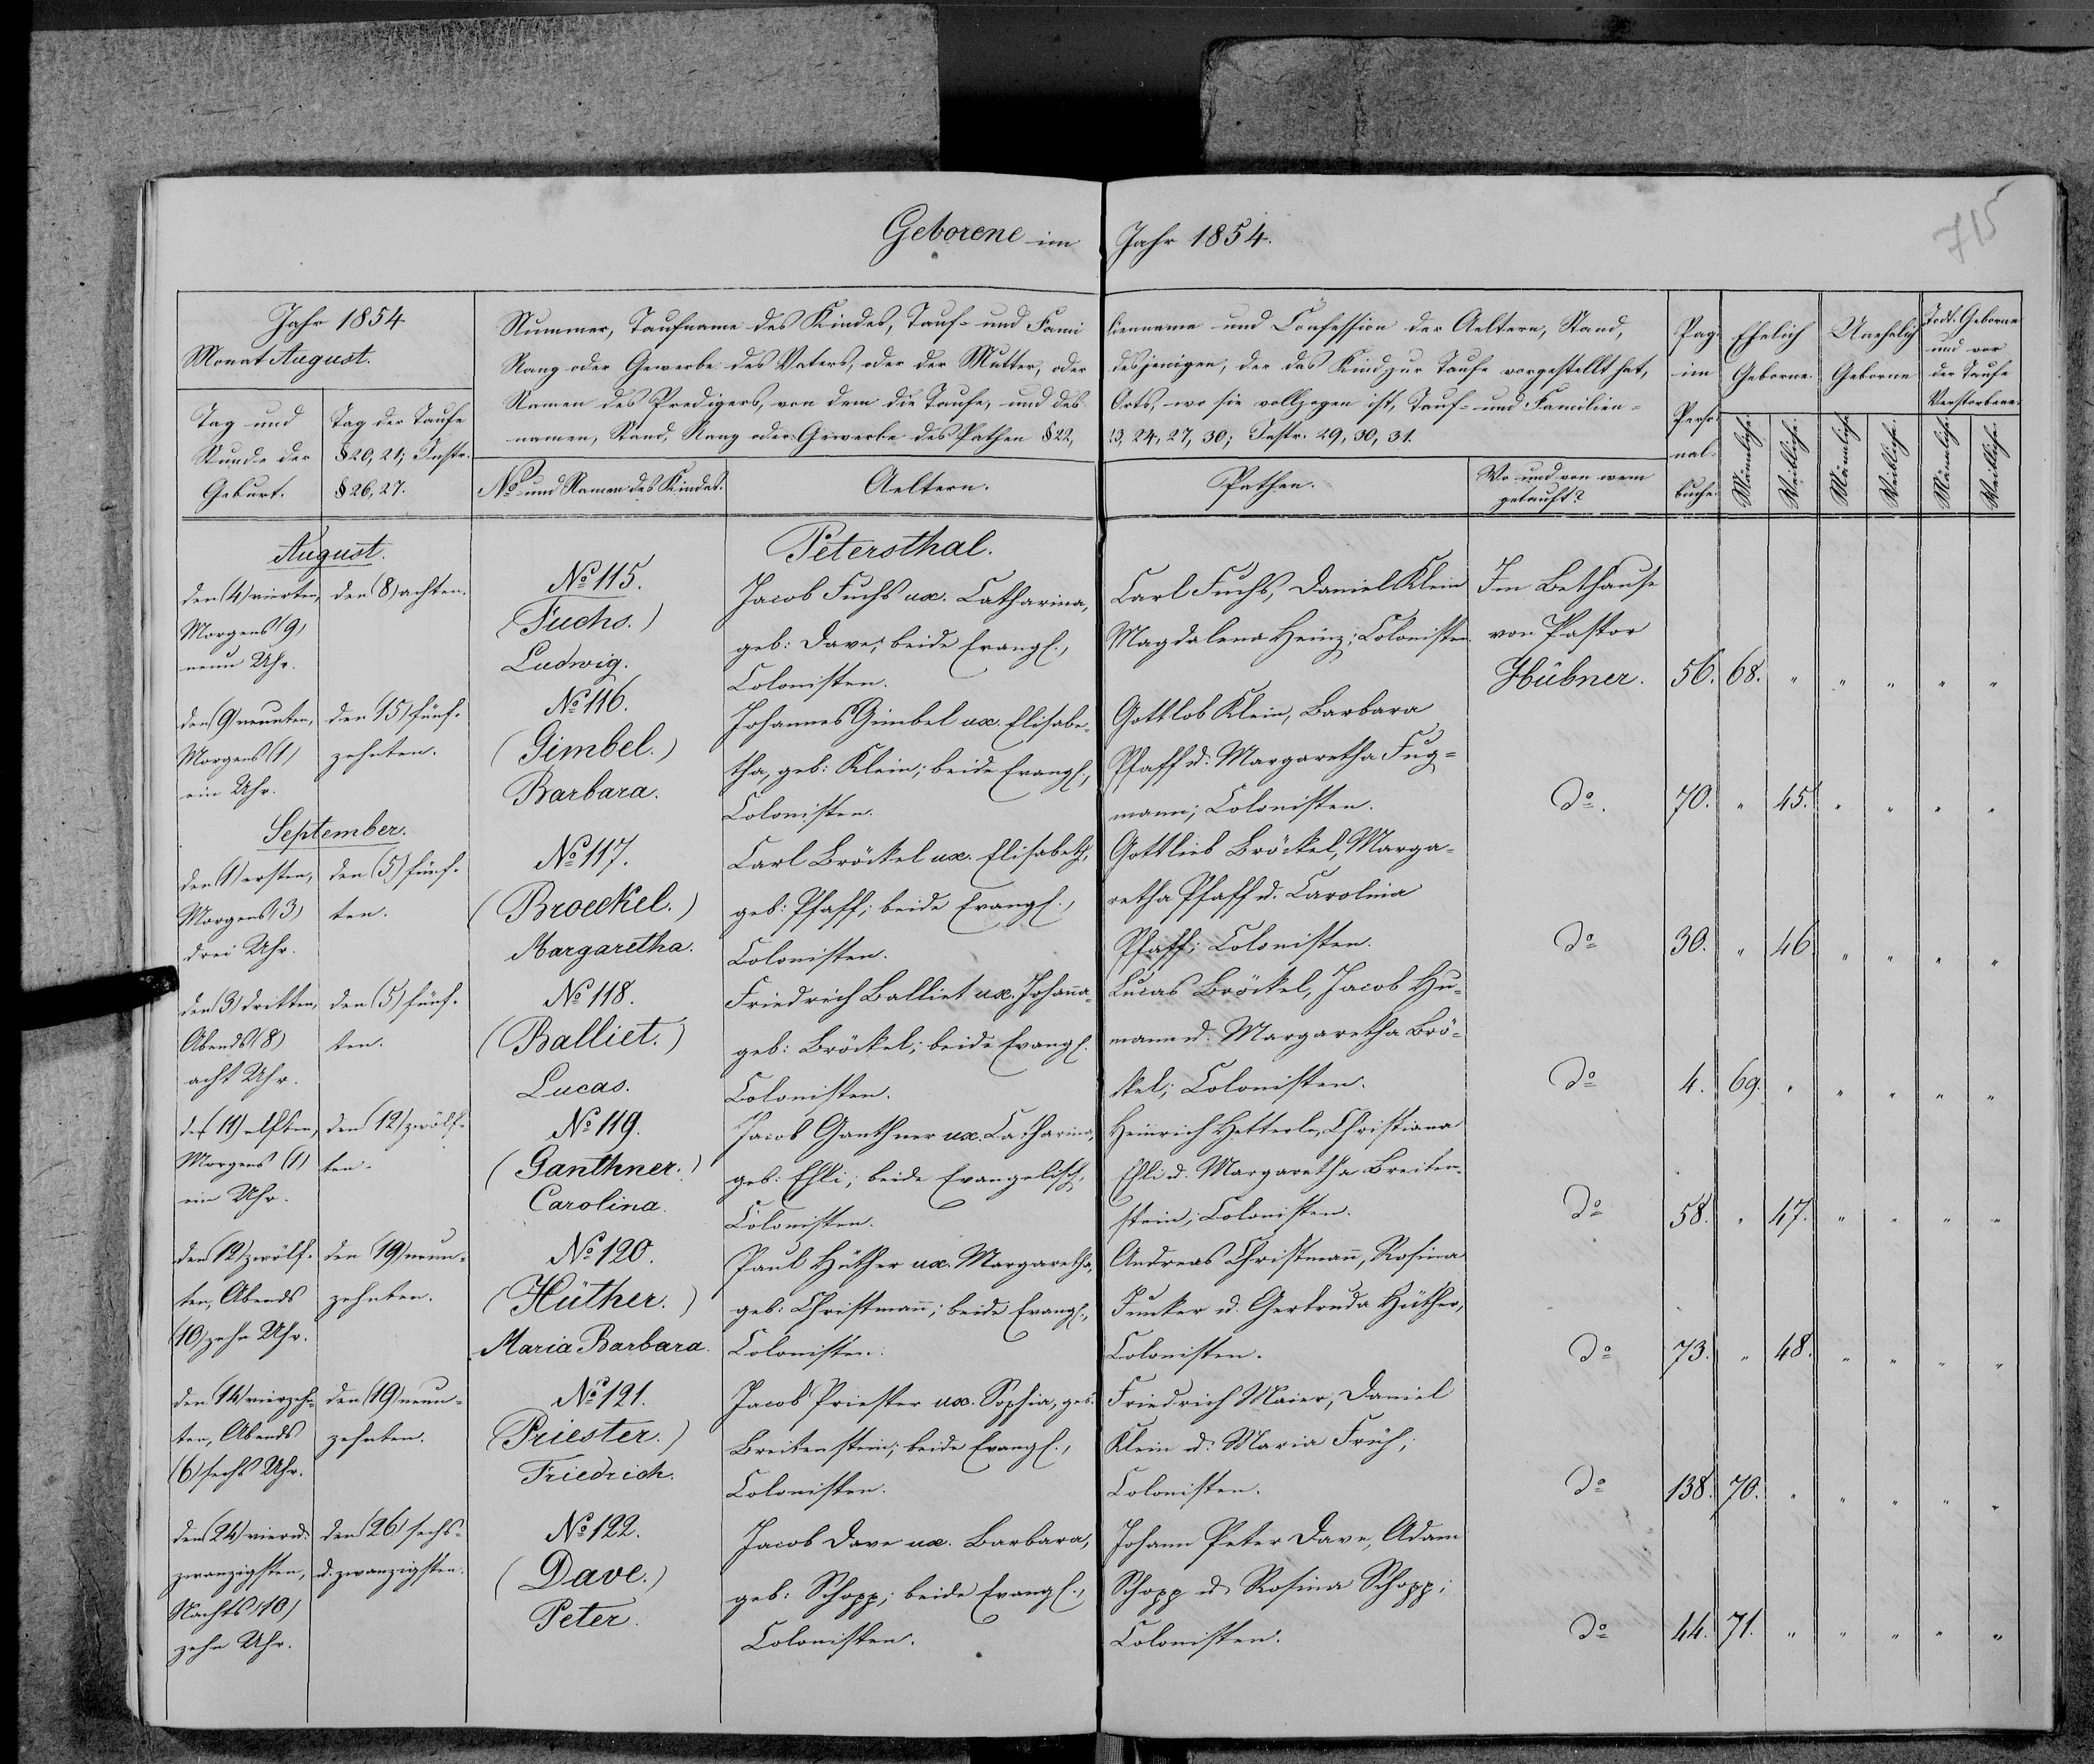 Geborene im Jahr 1854.
715
Jahr 1854
Monat August.
Tag und
Stunde der
Geburt.
Tag der Taufe
§ 20, 21; Instr.
§ 26, 27.
Nummer, Taufname des Kindes, Tauf- und Familienname und Confession der Aeltern, Stand,
Rang oder Gewerbe des Vaters, oder der Mutter, oder desjenigen, der das Kind zur Taufe vorgestellt hat,
Namen des Predigers, von dem die Taufe, und des Orts, wo sie vollzogen ist, Tauf- und Familien-
namen, Stand, Rang oder Gewerbe des Pathen § 22, 23, 24, 27, 30; Instr. 29, 30, 31.
No und Namen des Kindes.
Aeltern.
Pathen.
Wo und von wem
getauft?
Pag.
im
Perso-
nal-
buche.
Ehelich
Geborne.
Unehelich
Geborne
Todt-Geborne
und vor
der Taufe
Verstorbene.
Männliche.
Weibliche.
Männliche.
Weibliche.
Männliche.
Weibliche.
August.
Petersthal.
den (4) vierten,
Morgens (9)
neun Uhr.
den (8) achten.
No 115.
(Fuchs.)
Ludwig.
Jacob Fuchs ux. Catharina,
geb: Dave; beide Evangl.,
Colonisten.
Carl Fuchs, Daniel Klein
Magdalena Heinz; Colonisten
Im Bethause
von Pastor
Hübner.
56. 68. " " " " "
den (9) neunten,
Morgens (1)
ein Uhr.
den (15) fünf-
zehnten.
No 116.
(Gimbel.)
Barbara.
Johannes Gimbel ux. Elisabe-
tha, geb: Klein; beide Evangl.,
Colonisten.
Gottlob Klein, Barbara
Pfaff u. Margaretha Fug-
mann; Colonisten.
do.
70. " 45. " " " "
September.
den (1) ersten,
Morgens (3)
drei Uhr.
den (5) fünf-
ten.
No 117.
(Broeckel.)
Margaretha.
Carl Bröckel ux. Elisabeth,
geb: Pfaff; beide Evangl.,
Colonisten.
Gottlieb Bröckel, Marga-
retha Pfaff u. Carolina
Pfaff; Colonisten.
do
30. " 46. " " " "
den (3) dritten,
Abends (8)
acht Uhr.
den (5) fünf-
ten.
No 118.
(Balliet.)
Lucas.
Friedrich Balliet ux. Johanna
geb: Bröckel; beide Evangl.
Colonisten.
Lucas Bröckel, Jacob Hu-
mann u. Margaretha Brö-
ckel; Colonisten.
do
4. 69. " " " " "
den (11) elften,
Morgens (1)
ein Uhr.
den (12) zwölf-
ten.
No 119.
(Ganthner.)
Carolina.
Jacob Ganthner ux. Catharina,
geb: Ehli; beide Evangelisch,
Colonisten.
Heinrich Hetterle, Christiana
Ehli u. Margaretha Breiten-
stein; Colonisten.
do
58. " 47. " " " "
den (12) zwölf-
ten, Abends
(10) zehn Uhr.
den (19) neun-
zehnten.
No 120.
(Hüther.)
Maria Barbara.
Paul Hüther ux. Margaretha,
geb: Christmann; beide Evangl.,
Colonisten.
Andreas Christmann, Rosina
Junker u. Gertruda Hüther,
Colonisten.
do
73. " 48. " " " "
den (14) vierzehn-
ten, Abends
(6) sechs Uhr.
den (19) neun-
zehnten.
No 121.
(Priester.)
Friedrich.
Jacob Priester ux. Sophia, geb:
Breitenstein; beide Evangl.,
Colonisten.
Friedrich Maier, Daniel
Klein u. Maria Früh;
Colonisten.
do
138. 70. " " " " "
den (24) vierund-
zwanzigsten,
Nachts (10)
zehn Uhr.
den (26) sechs-
u. zwanzigsten.
No 122.
(Dave.)
Peter.
Jacob Dave ux. Barbara,
geb: Schopp; beide Evangl.,
Colonisten.
Johann Peter Dave, Adam
Schopp u. Rosina Schopp;
Colonisten.
do
44. 71. " " " " "